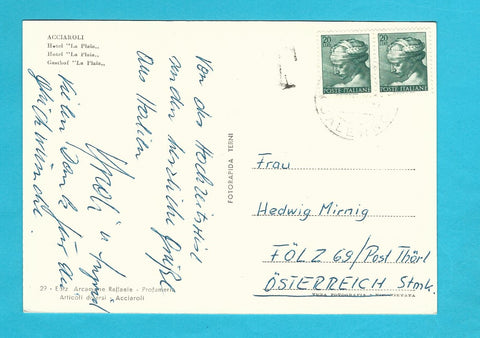 ACCIAROLI
Hotel "La Plaia,,
Hotel "La Plaia,,
Gasthof "La Plaia,,
Von der Hochzeitsreise
senden herzliche Grüße
aus Italien
Vielen Dank für die
Glückwünsche.
FOTORAPIDA TERNI
29 - Ediz. Arcamone Raffaele - Profumeria
Articoli diversi - Acciaroli
20
LIRE
POSTE ITALIANE
20
LIRE
POSTE ITALIANE
T
Frau
Hedwig Mirnig
FÖLZ 69/Post Thörl
ÖSTERREICH Stmk.
VERA FOTOGRAFIA